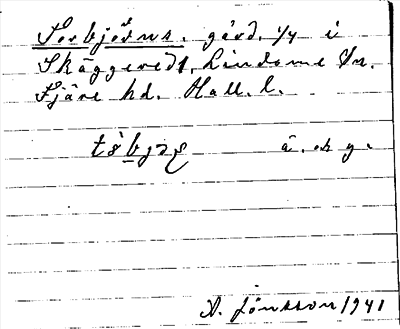 Torbjörns. gård. 1/4 i
Skäggered 1, Lindome sn.
Fjäre hd. Hall. l.
ä. och y.
A. Jönsson 1941